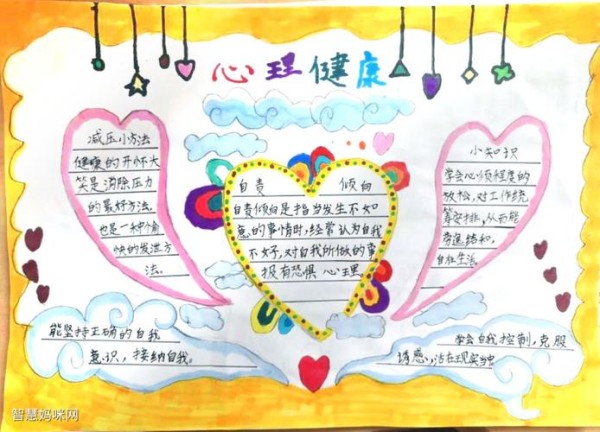 心理健康
减压小方法
健康的开怀大
笑是消除压力
的最好方法,
也是一种愉
快的发泄方
法。
自责 倾向
自责倾向是指当发生不如
意的事情时,经常认为自我
不好,对自我所做的事
抱有恐惧心理。
小知识
学会心烦程度的
放松,对工作统
筹安排,从而能
劳逸结合,
自在生活。
能坚持正确的自我
意识,接纳自我。
学会自我控制,克服
诱惑,活在现实当中
智慧妈咪网